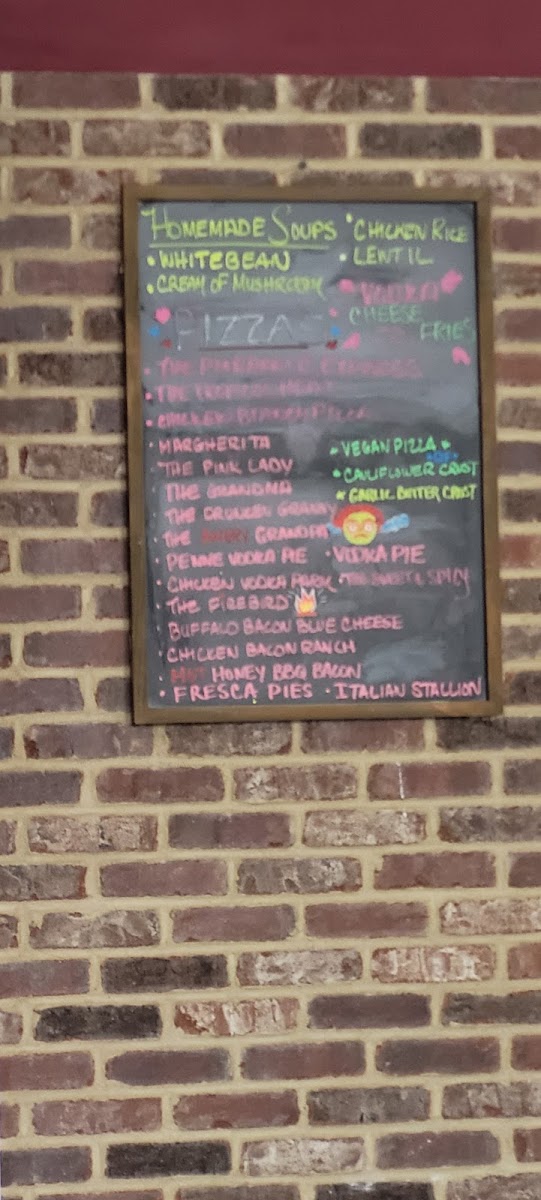 HOMEMADE SOUPS • CHICKEN RICE
• WHITEBEAN • LENTIL
• CREAM OF MUSHROOM
VODKA
CHEESE
FRIES
PIZZAS
• THE
• THE
• CHICKEN PIZZA
• MARGHERITA
• THE PINK LADY
• THE GRANDMA
• THE DRUNKEN GRANNY
• THE ANGRY GRANDPA
• VEGAN PIZZA •
• CAULIFLOWER CRUST
* GARLIC BUTTER CRUST
• PENNE VODKA PIE • VODKA PIE
• CHICKEN VODKA PARM • THE SWEET & SPICY
• THE FIREBIRD
• BUFFALO BACON BLUE CHEESE
• CHICKEN BACON RANCH
• HOT HONEY BBQ BACON
• FRESCA PIES • ITALIAN STALLION